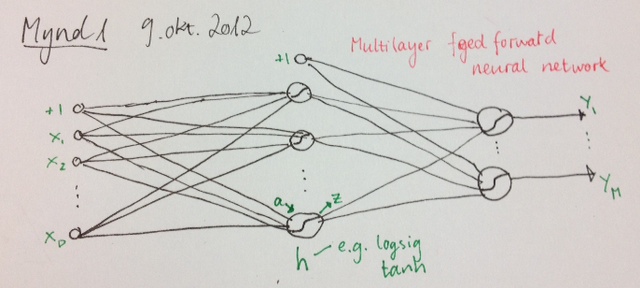 Mynd 1 9. okt. 2012
Multilayer feed forward
neural network
+1
+1
x1
x2
⋮
xD
a
z
h
e.g. logsig
tanh
y1
⋮
yM